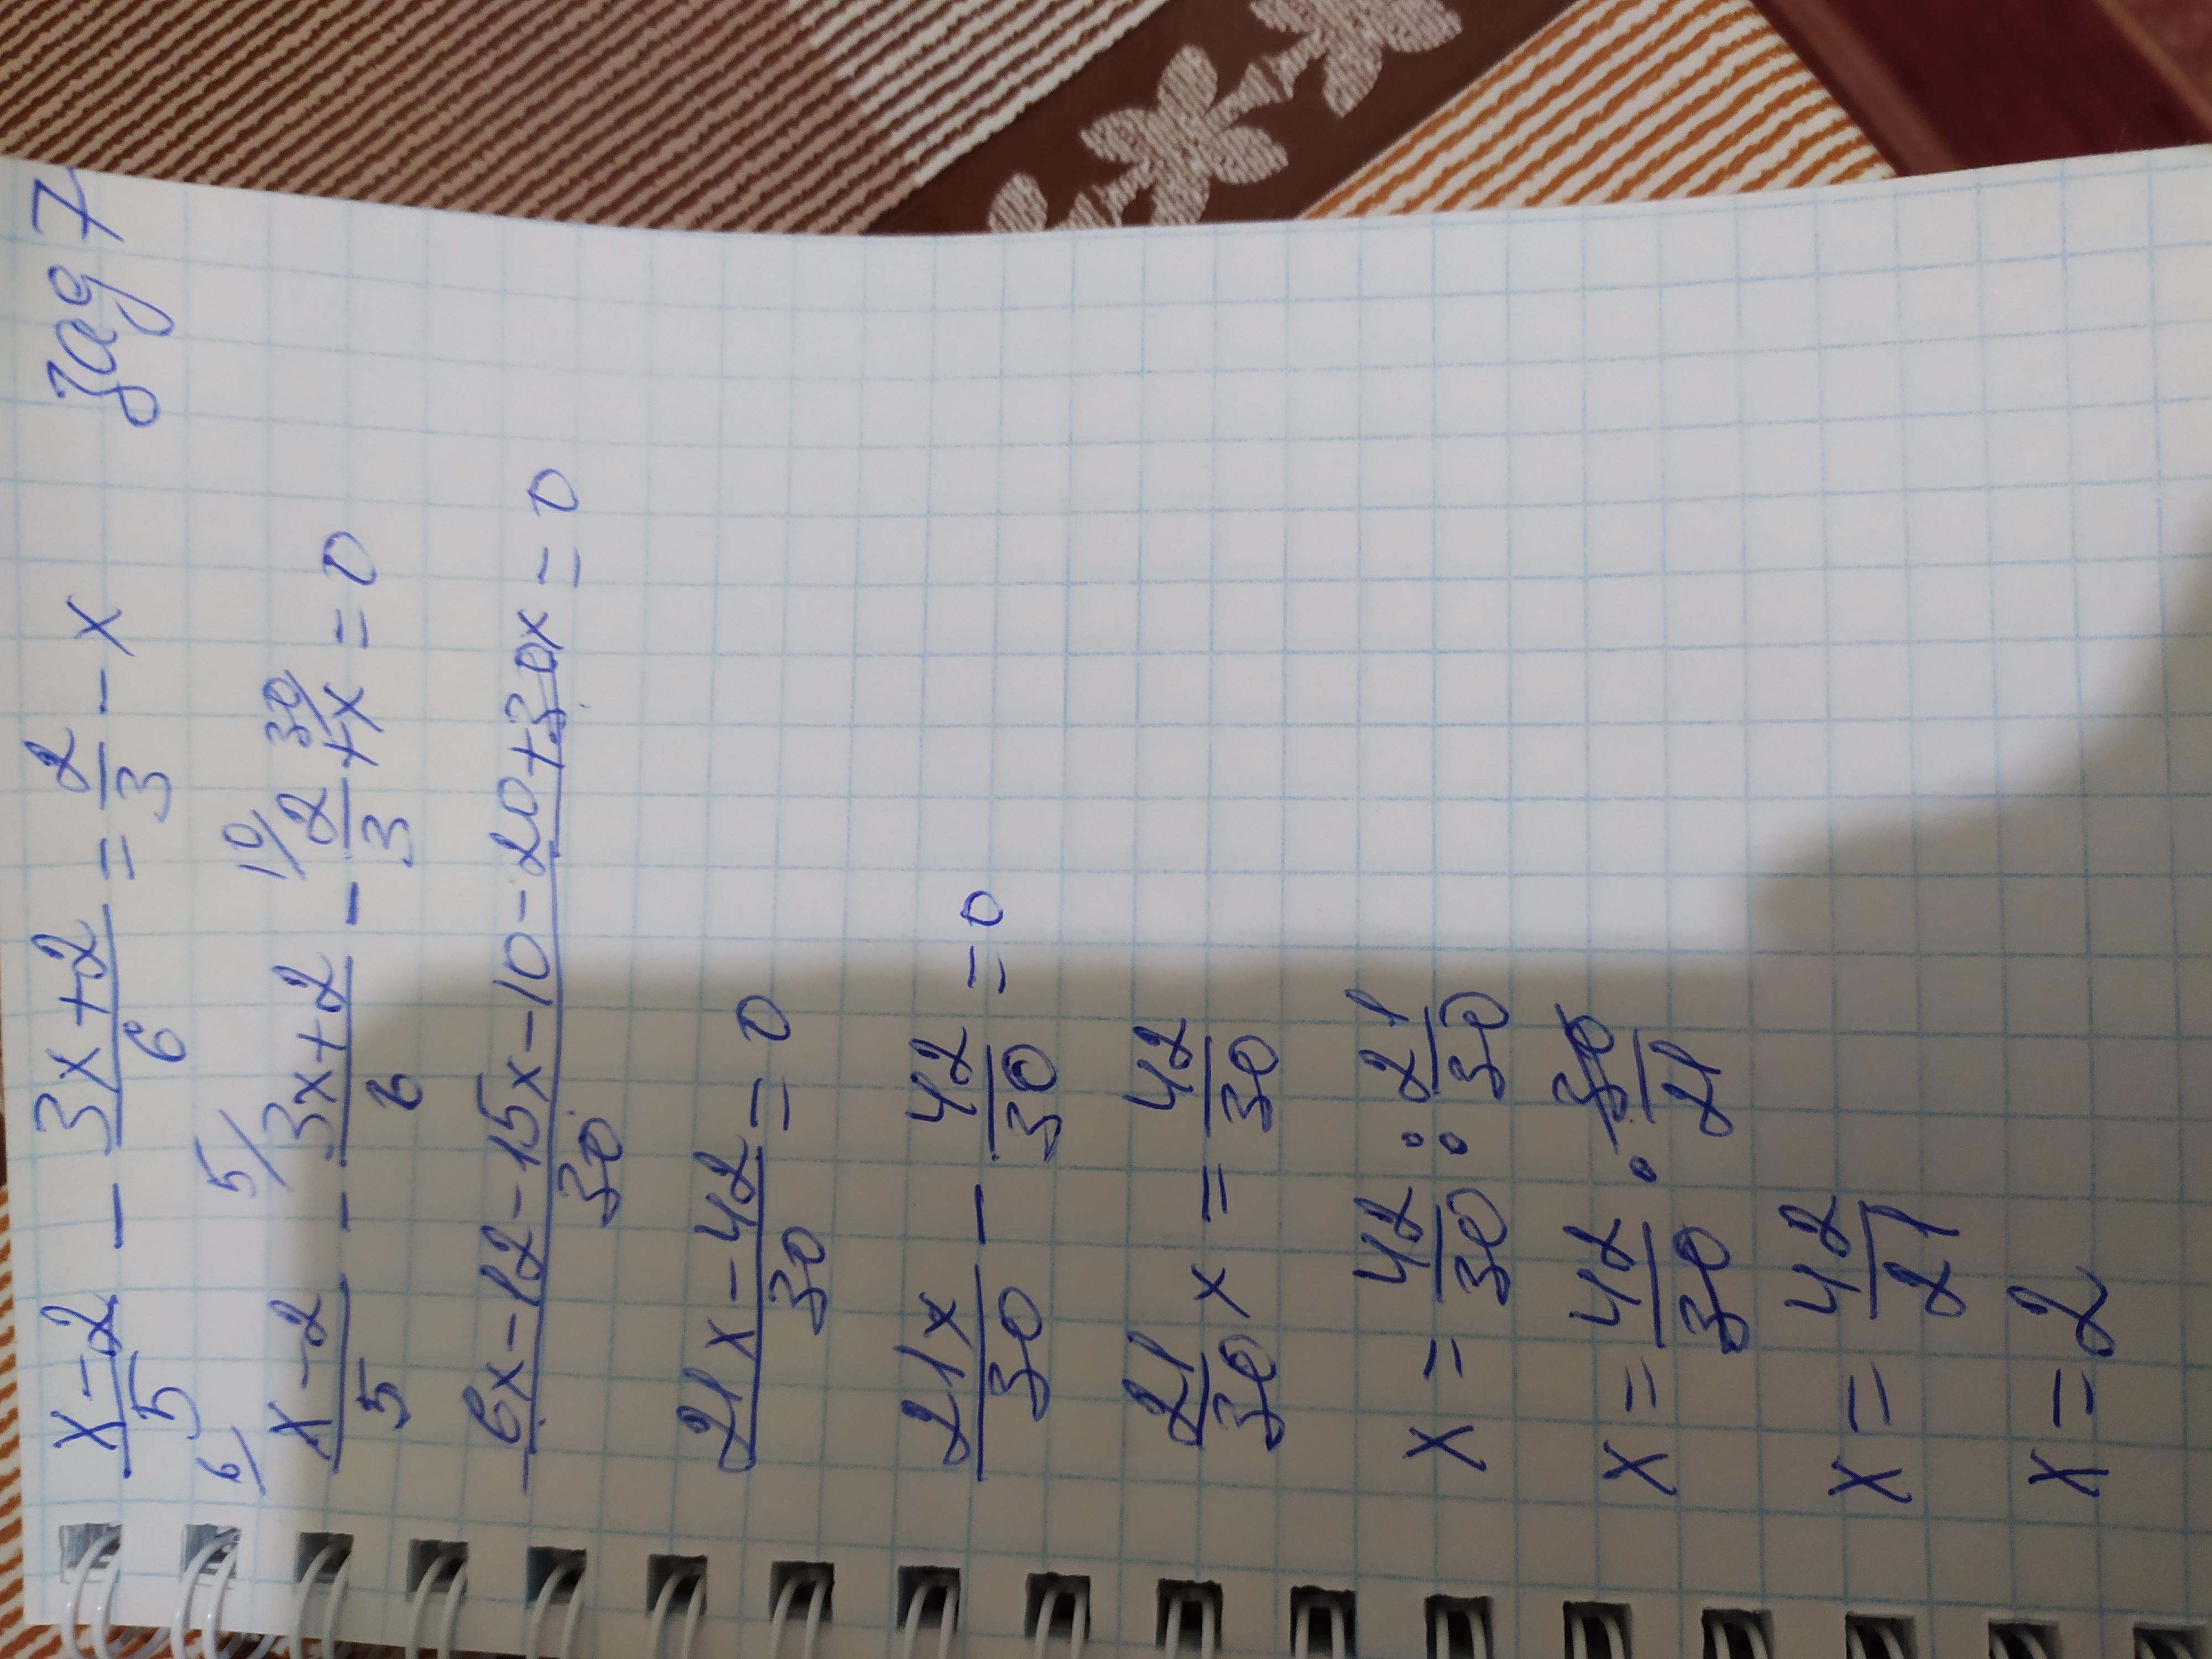 Зад 7
x-2/5 - 3x+2/6 = 2/3 - x
6/ x-2/5 - 5/ 3x+2/6 - 10/ 2/3 + 30/ x = 0
6x-12-15x-10-20+30x/30 = 0
21x-42/30 = 0
21x/30 - 42/30 = 0
21/30 x = 42/30
x = 42/30 : 21/30
x = 42/30 · 30/21
x = 42/21
x = 2